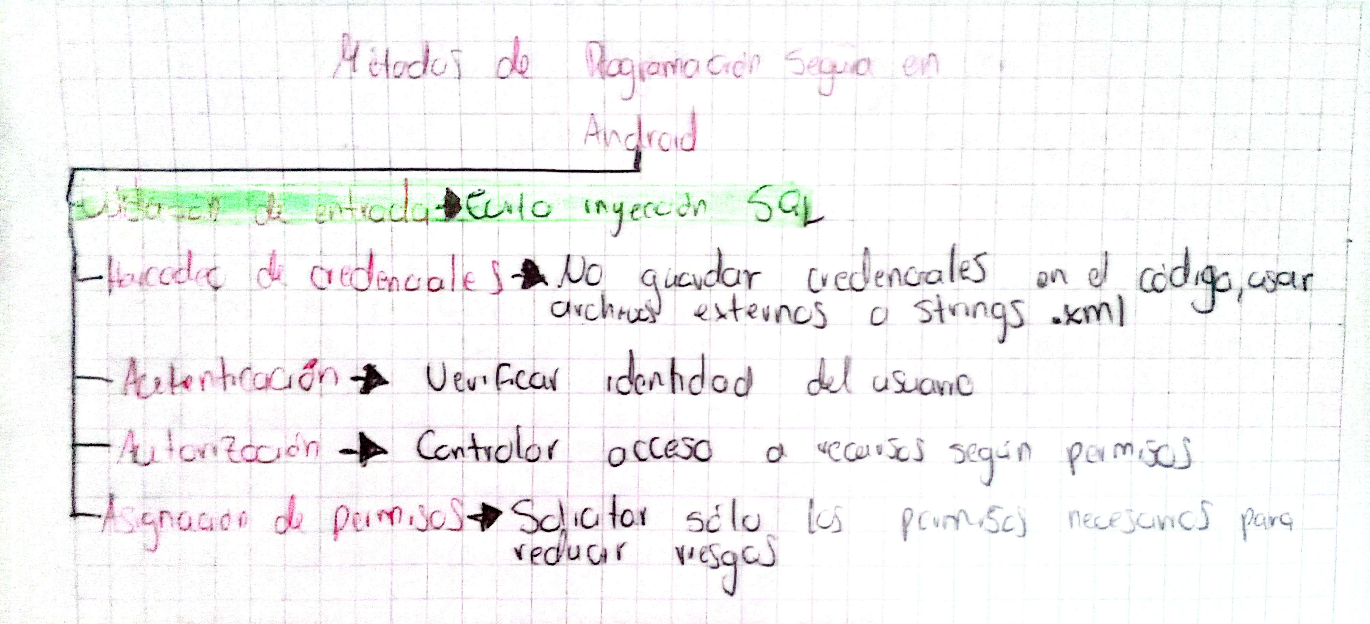 Métodos de Programación Segura en
Android
de entrada → Evita inyección SQL
de credenciales → No guardar credenciales en el código, usar
archivos externos o strings .xml
Autenticación → Verificar identidad del usuario
Autorización → Controlar acceso a recursos según permisos
Asignación de permisos → Solicitar sólo los permisos necesarios para
reducir riesgos